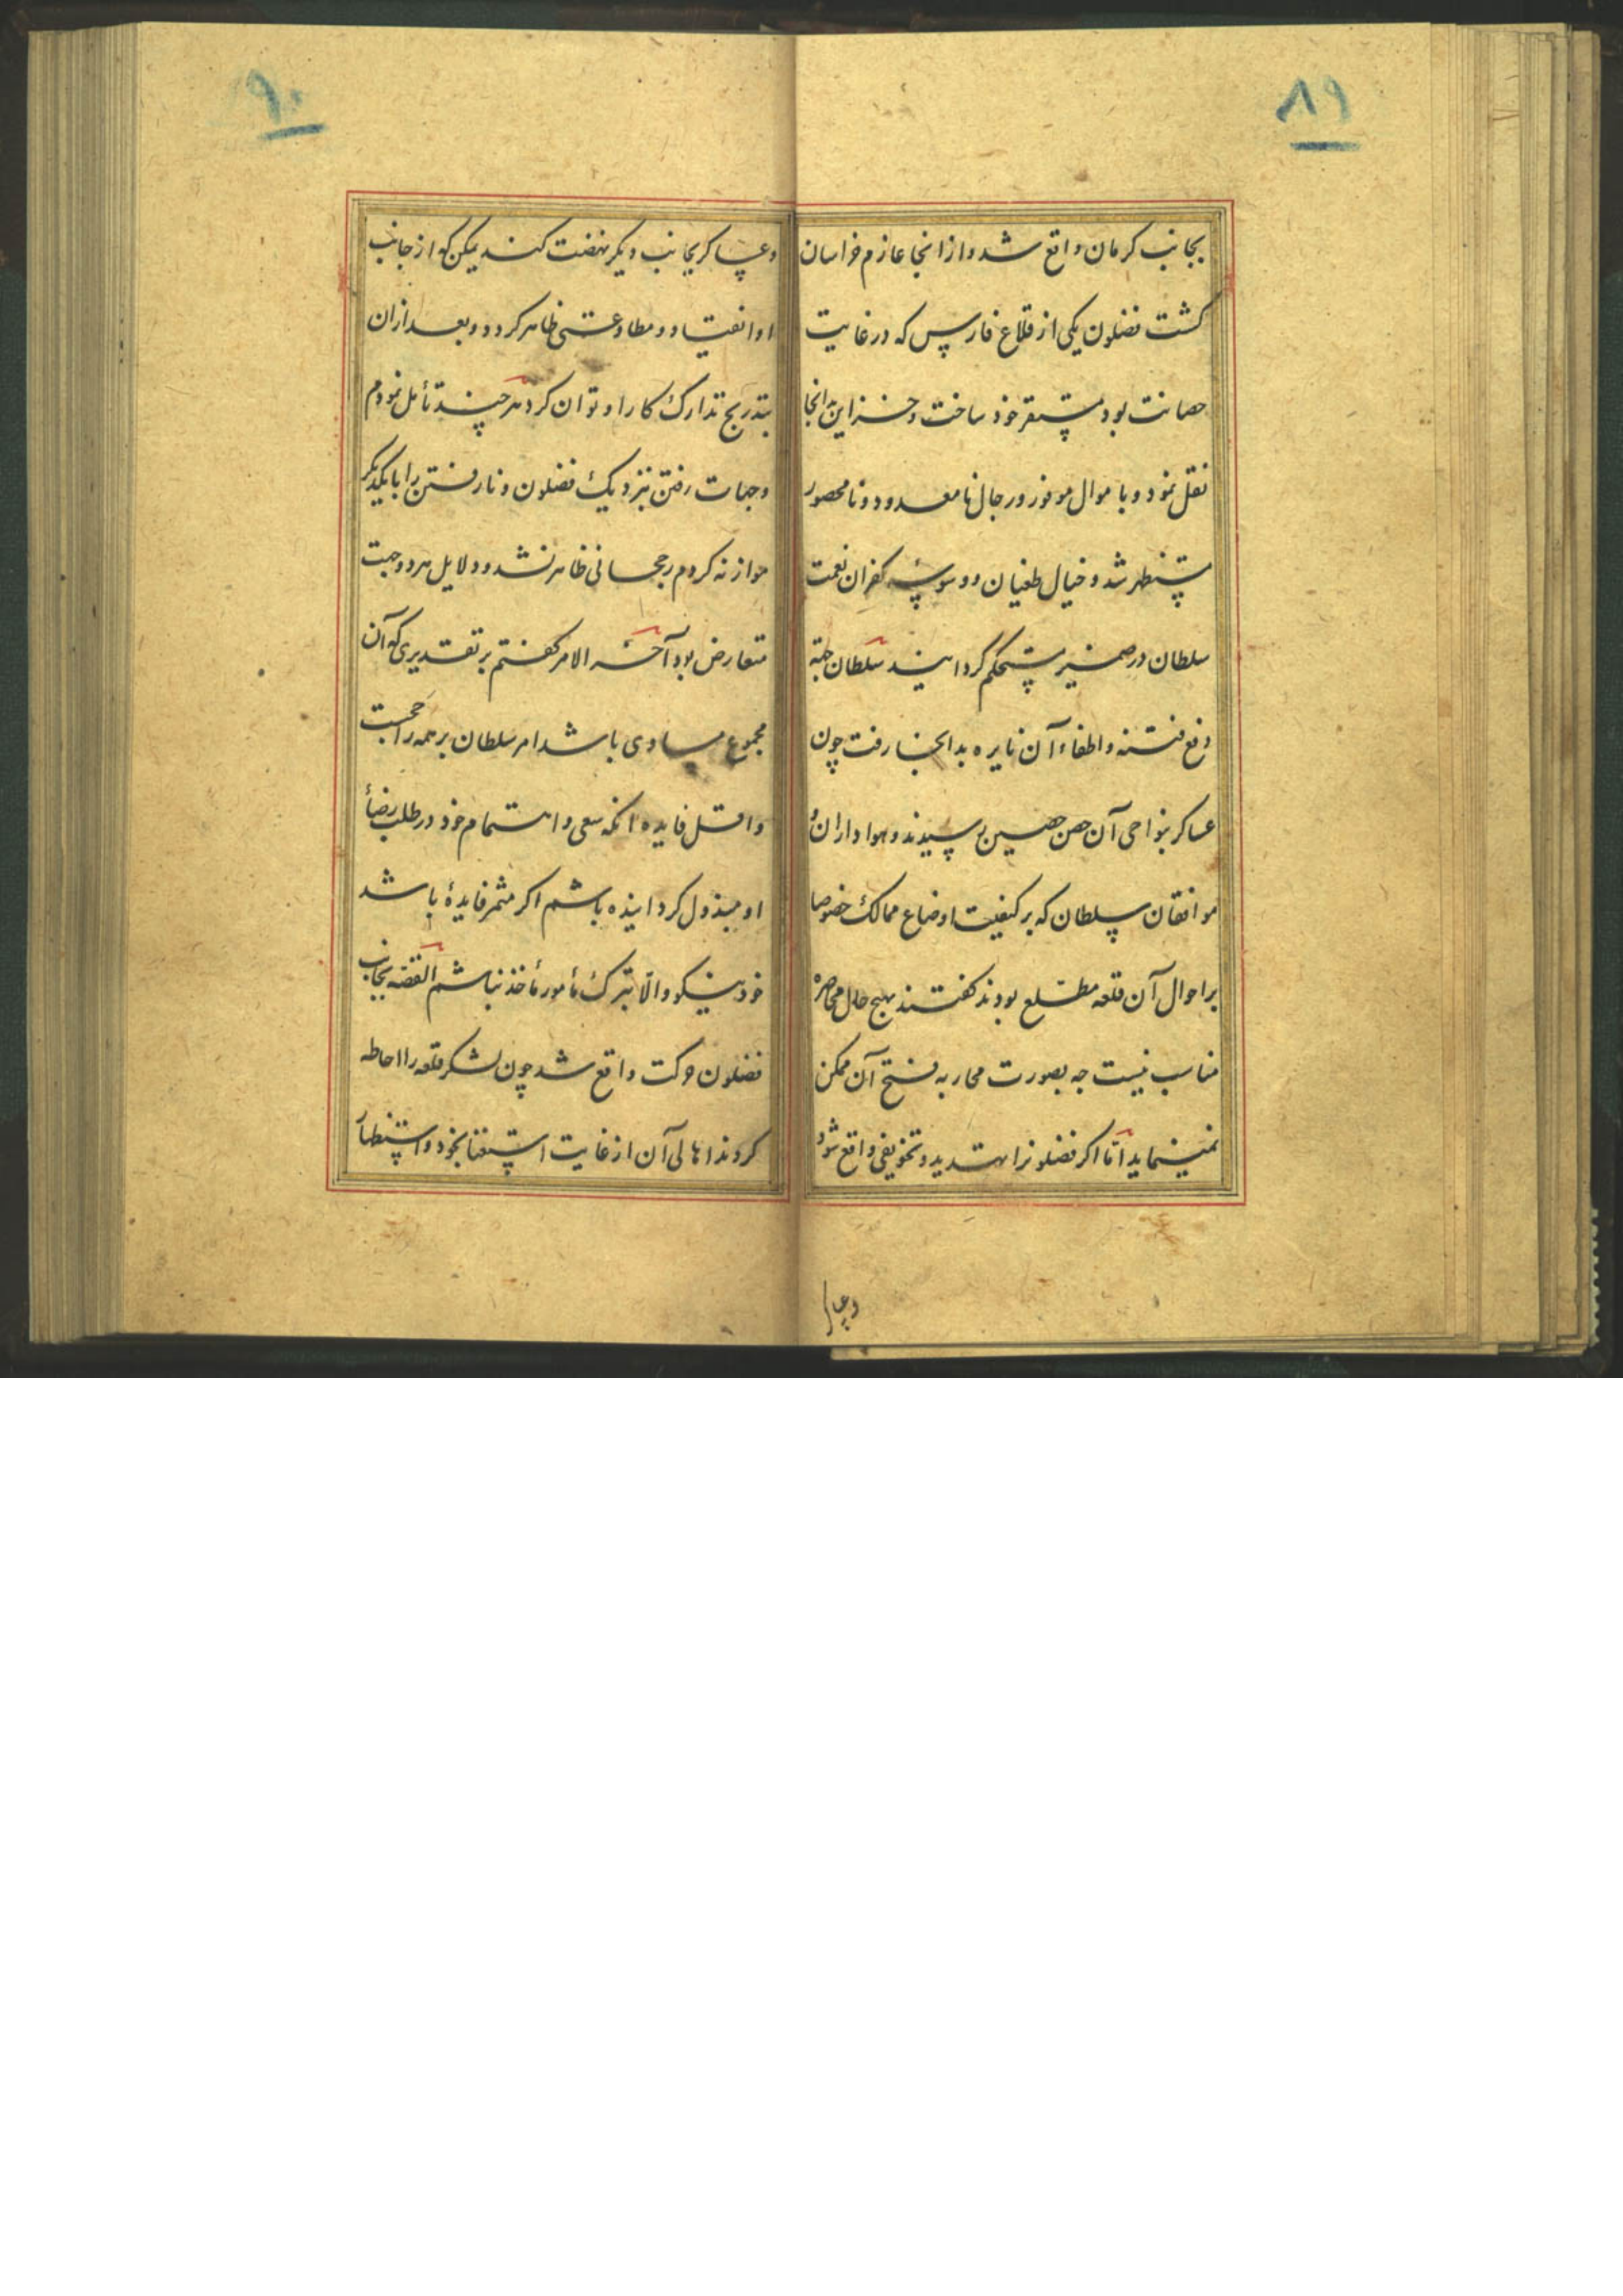 ۸۹
بجانب کرمان واقع شد و از انجا عازم خراسان
کشت فضلون یکی از قلاع فارس که در غایت
حصانت بود مستقر خود ساخت و خزاین بدانجا
نقل نمود و باموال موفور و رجال نامعدود و نامحصور
مستظهر شد و خیال طغیان و وسوسه کفران نعمت
سلطان در ضمیر مستحکم کردانید سلطان جهة
دفع فتنه و اطفاء آن نایره بدانجا رفت چون
عساکر بنواحی آن حصن حصین رسیدند و هواداران و
موافقان سلطان که بر کیفیت اوضاع ممالک خصوصا
بر احوال آن قلعه مطلع بودند کفتند بهیچ حال محاصره
مناسب نیست چه بصورت محاربه فتح آن ممکن
نمینماید اما اکر فضلونرا تهدید و تخویفی واقع شود
وعسا
۹۰
و عساکر بجانب دیکر نهضت کنند یمکن که از جانب
او انقیاد و مطاوعتی ظاهر کردد و بعد ازان
بتدریج تدارک کار او توان کرد هر چند تأمل نمودم
وجهات رفتن بنزدیک فضلون و نارفتن را با یکدیکر
موازنه کردم رجحانی ظاهر نشد و دلایل هر دو جهت
متعارض بود آخر الامر کفتم بر تقدیری که آن
مجموع مساوی باشد امر سلطان بر همه راجحست
و اقل فایده انکه سعی و اهتمام خود در طلب رضاء
او مبذول کردانیده باشم اکر مثمر فایدهٔ باشد
خود نیکو و الّا بترک مأمور مأخذ نباشم القصه بجانب
فضلون حرکت واقع شد چون لشکر قلعه را احاطه
کردند اهالی آن از غایت استغنا بخود و استظهار